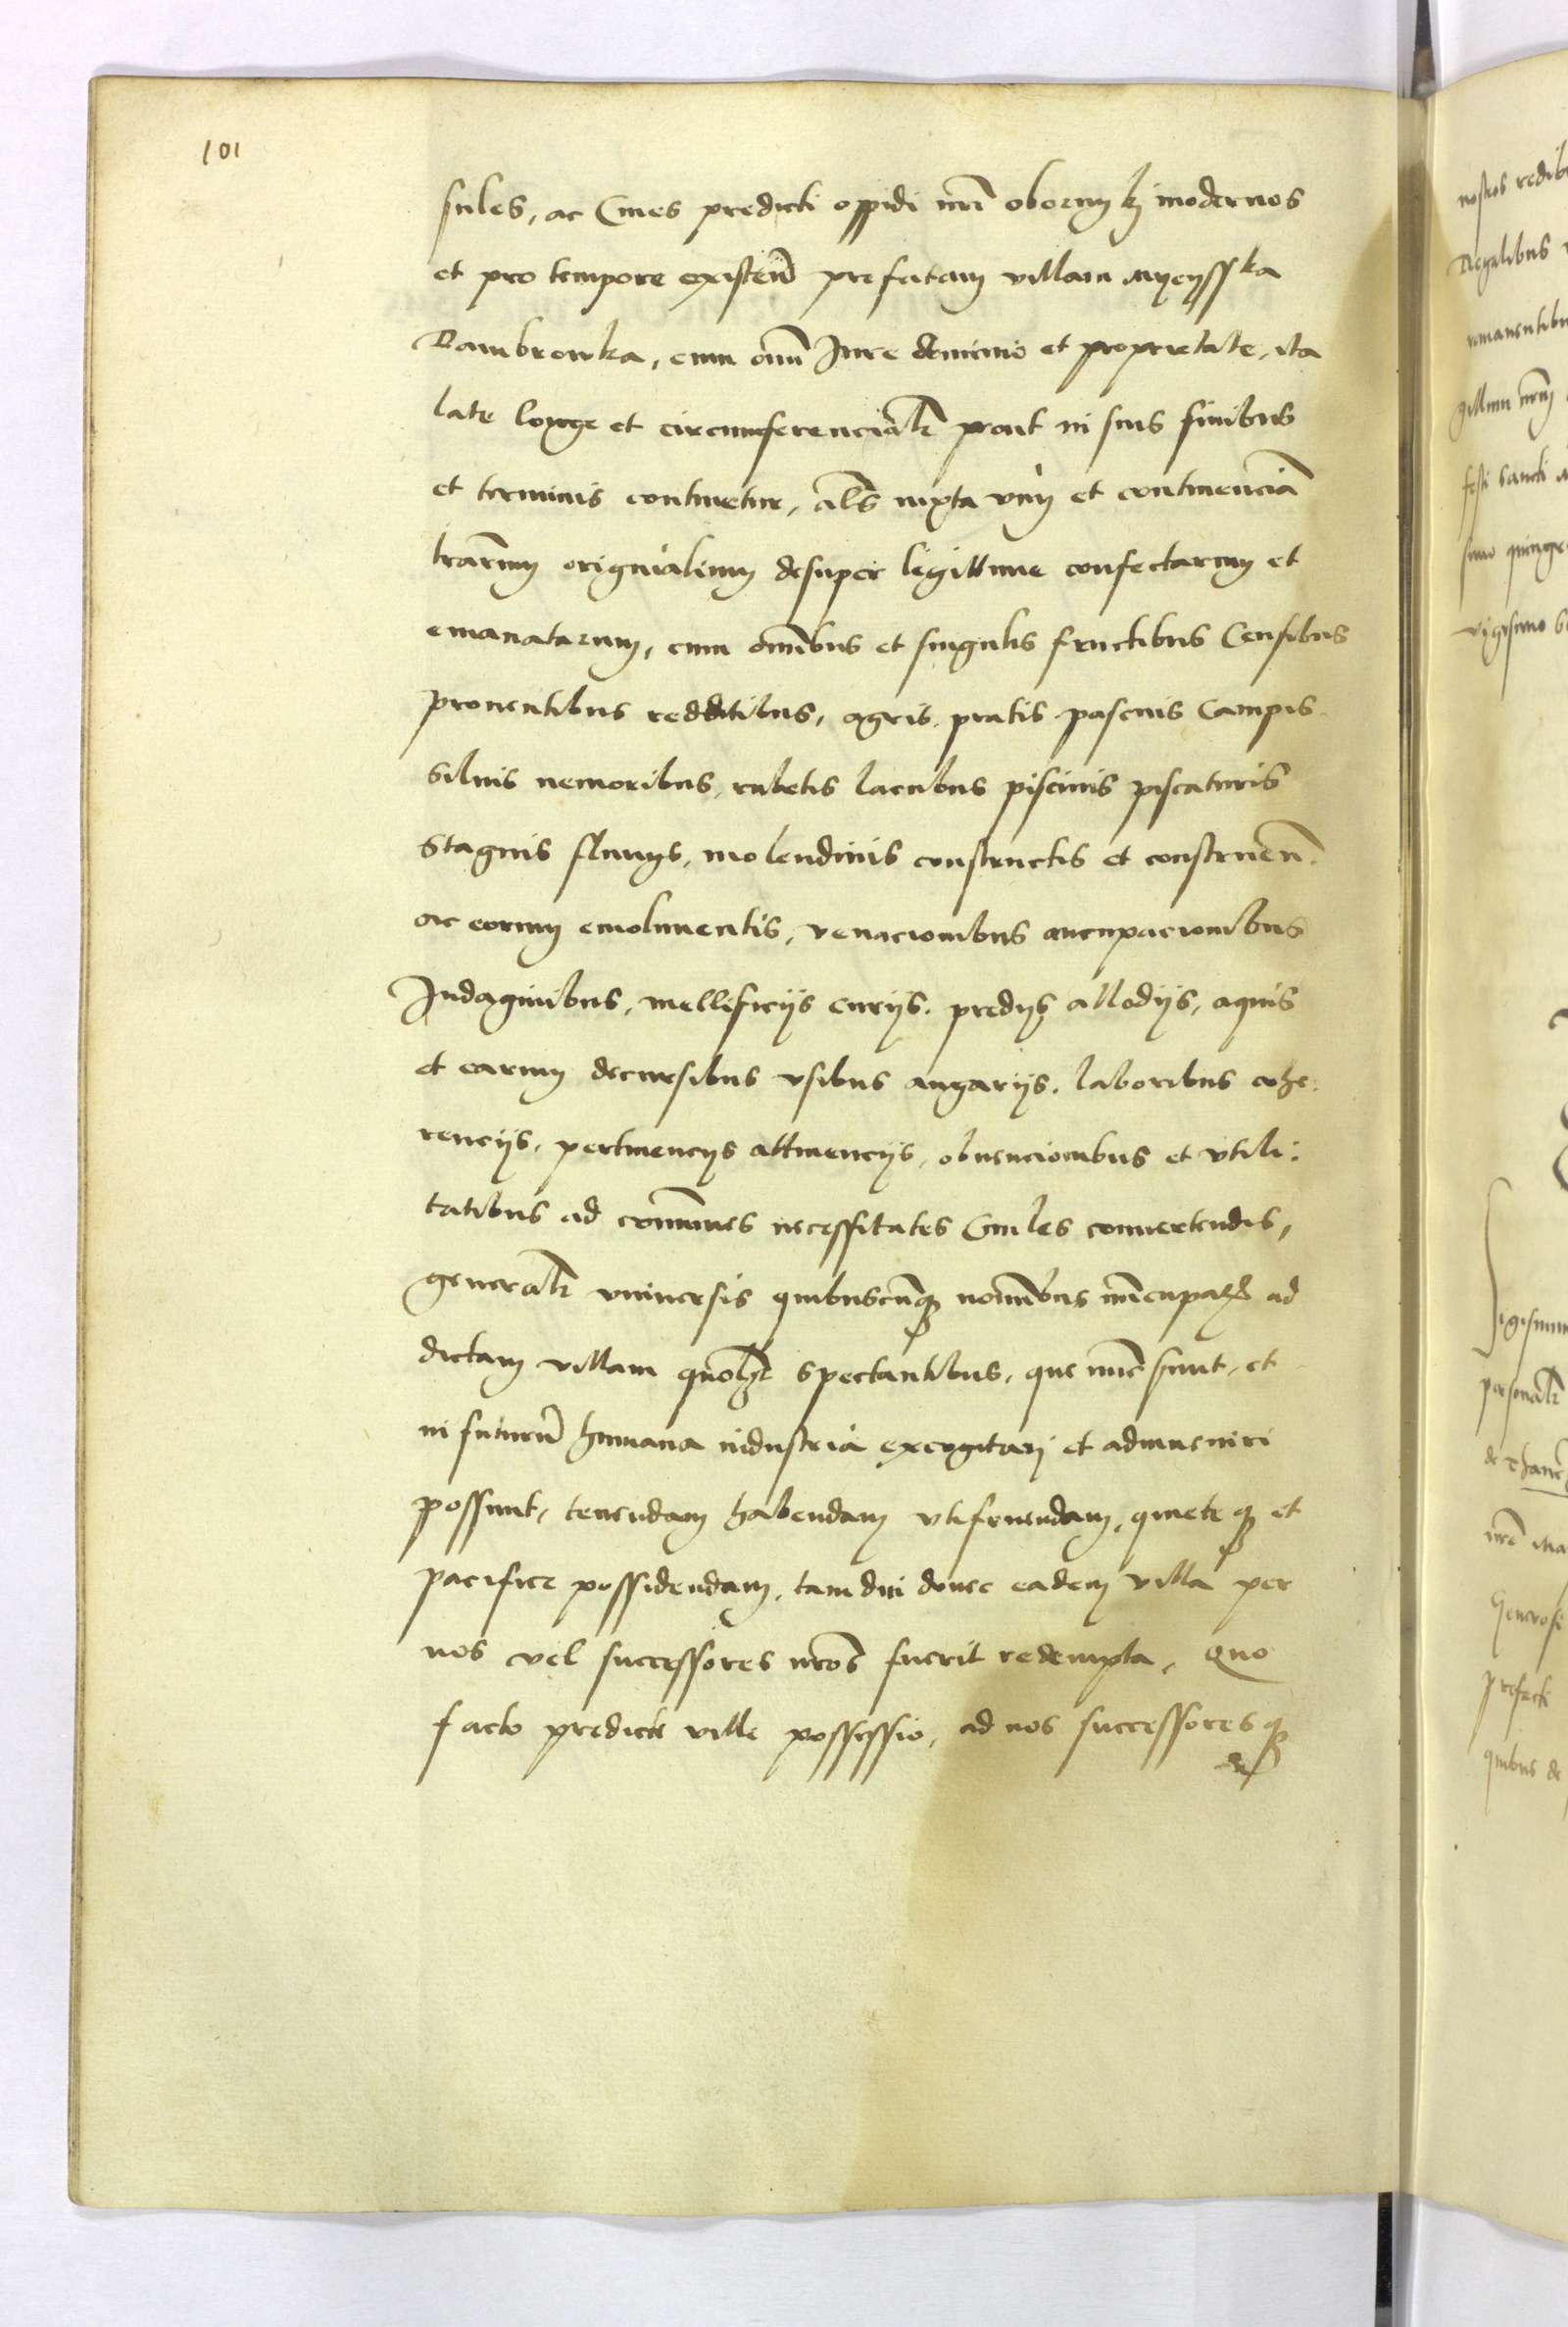 101
sules, ac Ciues predicti oppidi nri obornykj modernos
et pro tempore existen prefatam villam myeysska
Dambrowka, cum omi Jure dominio et proprietate, ita
late longe et circumferencialr prout in suis finibus
et terminis continetur, als iuxta vim et continencia
lrarum originalium desuper legittime confectarum et
emanatarum, cum omibus et singulis fructibus Censibus
prouentibus redditibus, agris, pratis pascuis Campis
Siluis nemoribus, rubetis lacubus piscinis piscaturis
Stagnis fluuys, molendinis constructis et construen.
ac eorum emolumentis, venacionibus aucupacionibus
Indaginibus, mellificiis curiis, predys allodiis, aquis
et earum decursibus vsibus angariis, laboribus cohe:
renciis, pertinencys attinenciis, obuencionibus et vtili:
tatibus ad comunes necessitates Ciuiles conuertendis,
generalr vniuersis quibuscunq nomibus nuncupat ad
dictam villam quolt spectantibus, que nunc sunt, et
in futuru humana industria excogitarj et adinueniri
possunt, tenendam habendam vtifruendam, quieteq et
pacifice possidendam, tamdiu donec eadem villa per
nos vel successores nros fuerit redempta, Quo
facto predicte ville possessio, ad nos successoresq
nostros redib
Regalibus
rmanentibu
gillum nrm
festi Sancti
simo quinge
vigesimo
Sigismun
personalr
de
nre
Generosi
prefecti
quibus de